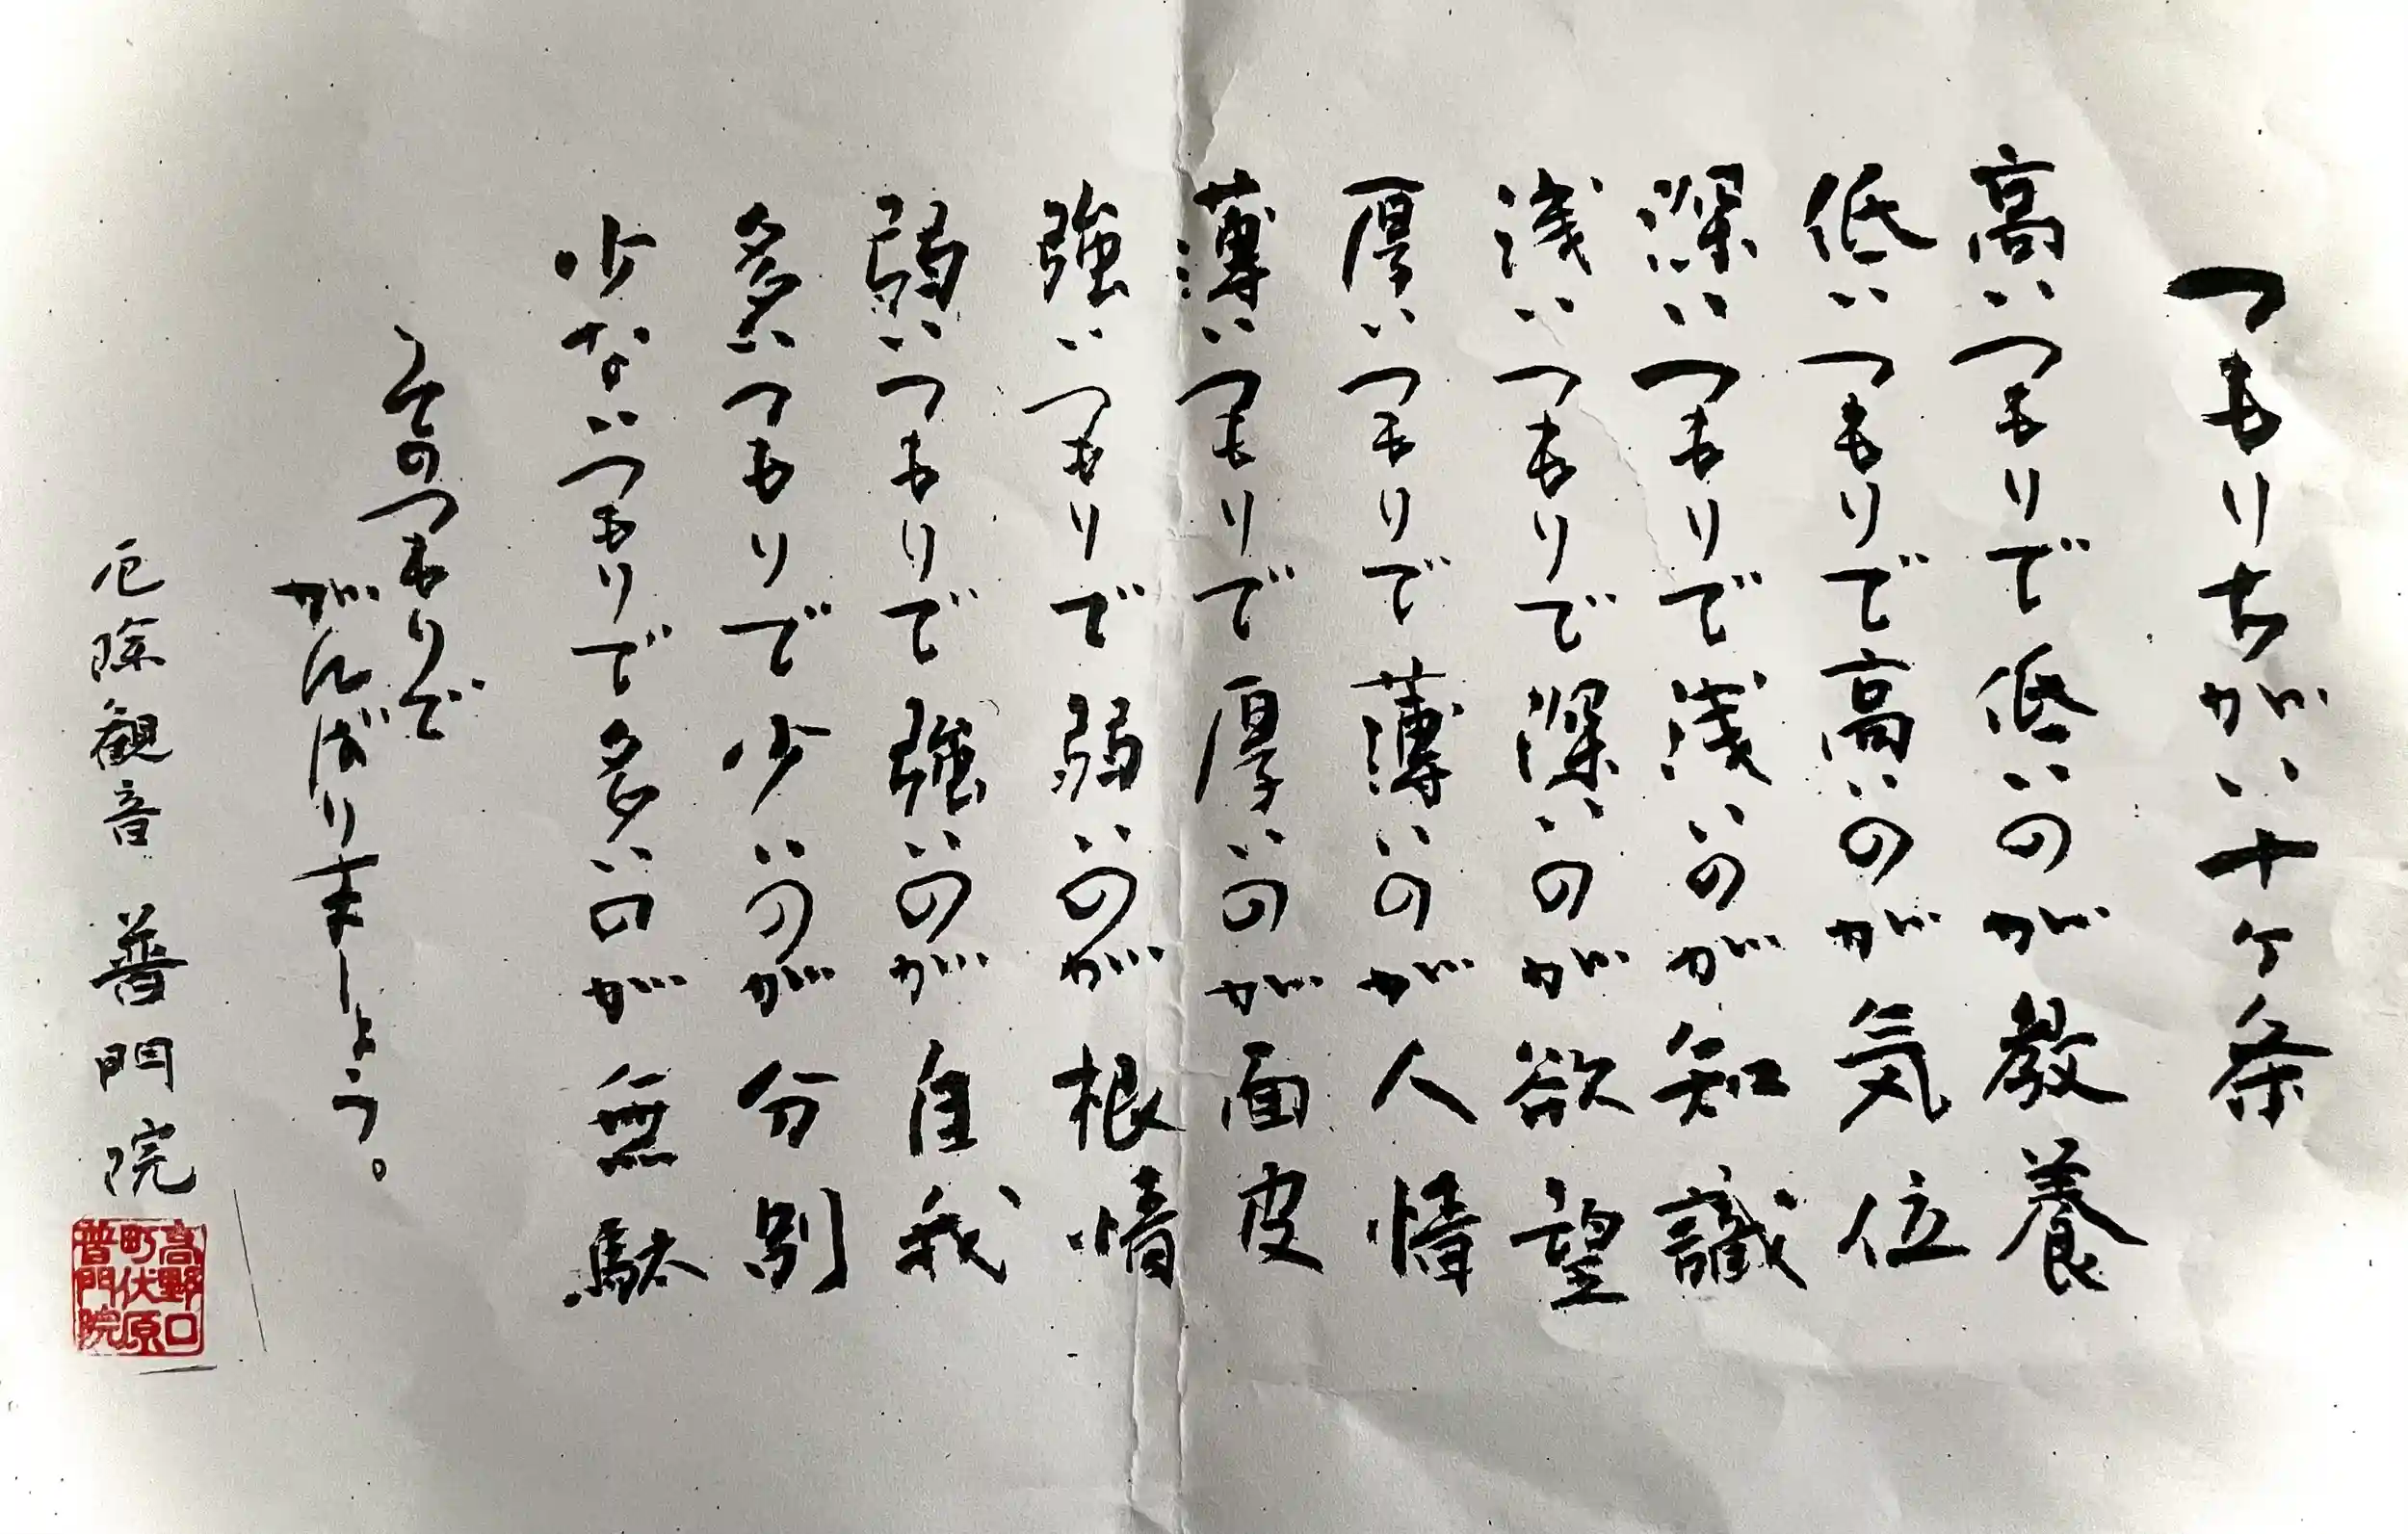 つもりちがい十ケ条
高いつもりで低いのが教養
低いつもりで高いのが気位
深いつもりで浅いのが知識
浅いつもりで深いのが欲望
厚いつもりで薄いのが人情
薄いつもりで厚いのが面皮
強いつもりで弱いのが根情
弱いつもりで強いのが自我
多いつもりで少いのが分別
少ないつもりで多いのが無駄
そのつもりで
がんばりましょう。
厄除観音 普門院
高野口
町伏原
普門院